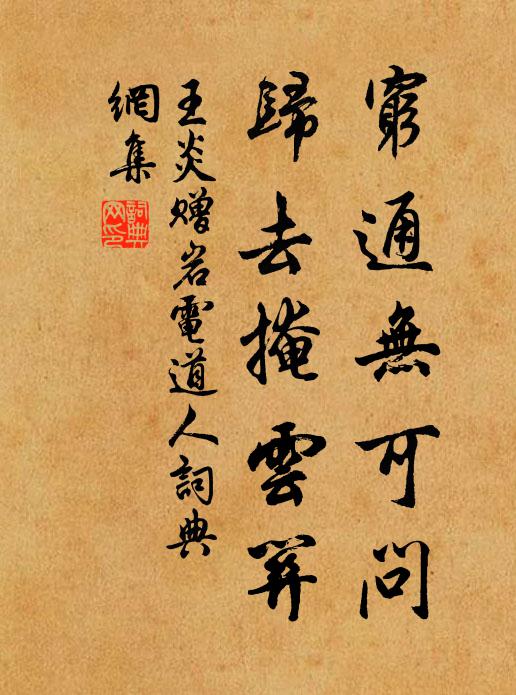 窮通無可問
歸去掩雲關
王炎贈岩電道人詞典
網集
詞典
网印